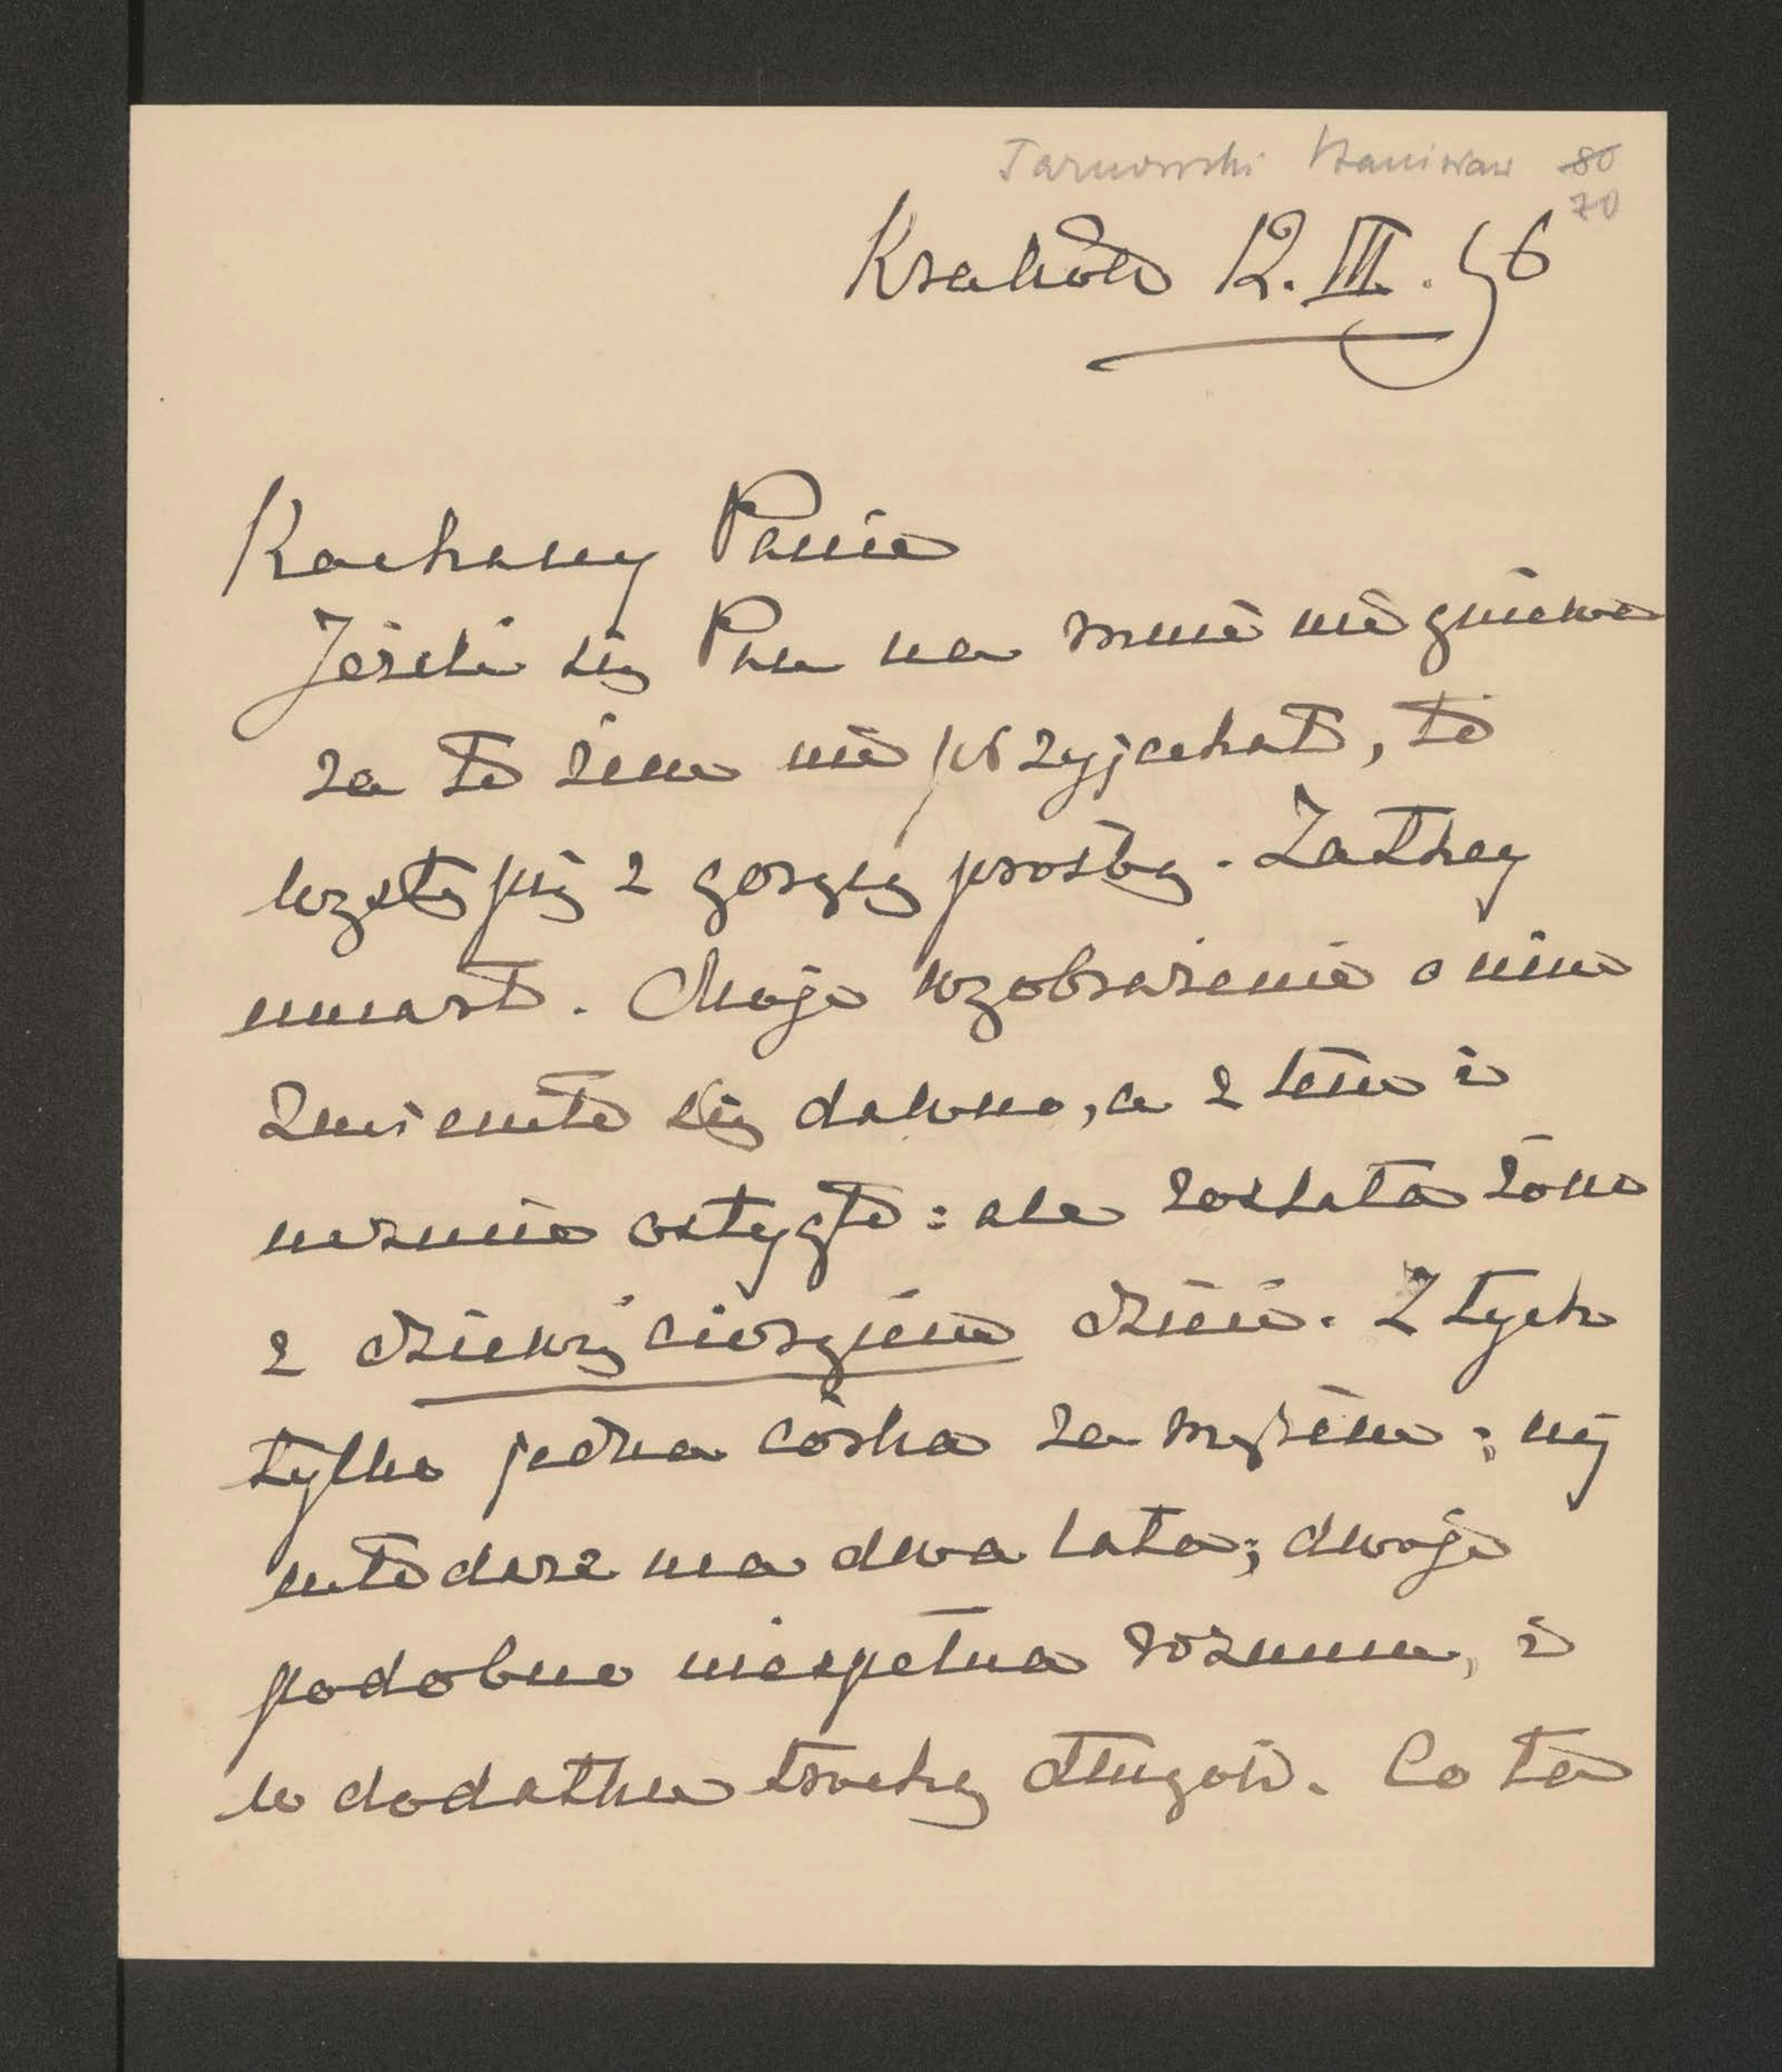 Tarnowski Stanisław 80
70
Kraków 12. III. 96
Kochany Panie
Jeżeli się Pan na mnie nie gniewa
za to żem nie przyjechał, to
wystąpię z gorącą prośbą. Zathey
umarł. Moje wyobrażenie o nim
zmieniło się dawno, a z tem i
uczucie ostygło: ale została żona
z dziewięciorgiem dzieci. Z tych
tylko jedna córka za mężem; naj
młodsze ma dwa lata; dwoje
podobno niespełna rozumu, i
w dodatku trochę długów. Co ta